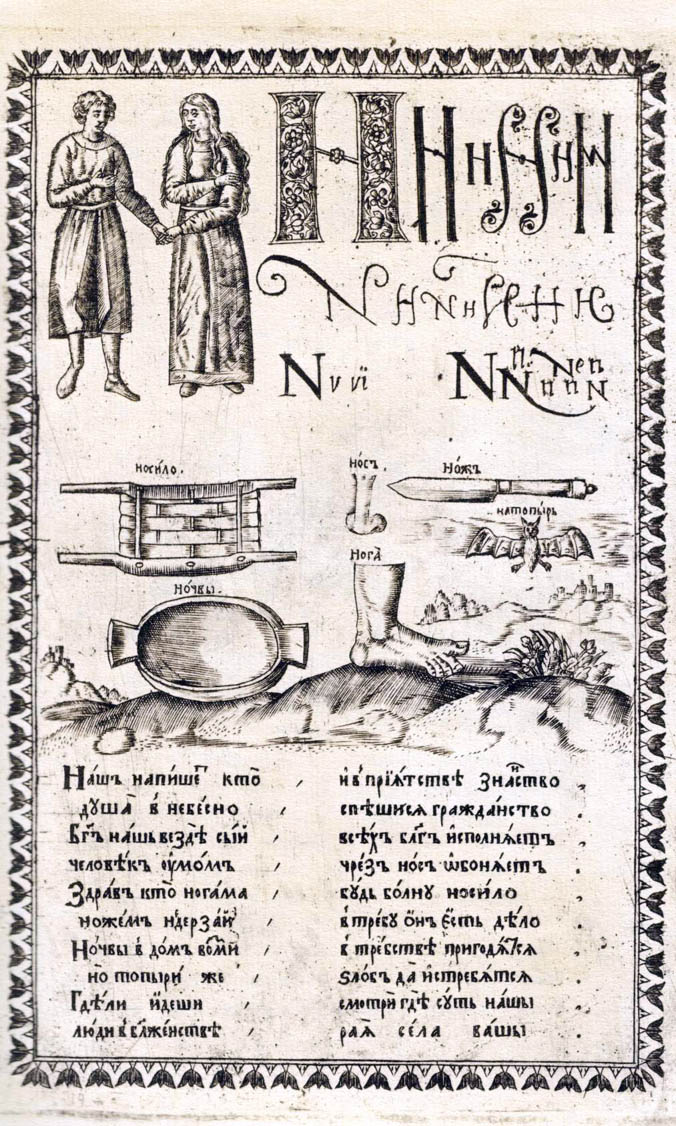 Н Н н Н Н н Н
N Н N н Н Н Н
N ν νϊ N N п N е п п п п N
носи́ло.
но́съ.
но́жъ
натопы́рь
нога̀
но́чвы.
На́шъ напи́шеⷮ кто̀ и҆ в̾ прїѧ́тствѣ зна́ⷩ҇ство
дꙋша̀ в̾ небе́сно спѣ́шисѧ гражда́нство
Бг҃ъ на́шъ вездѣ̀ сы́й всѣ́хъ бл҃гъ и҆сполнѧ́етъ
человѣ́къ ᲂу҆мо́мъ чре́зъ но́съ ѡ҆бонѧ́етъ
Здра́въ кто̀ нога́ма бꙋ́дь бо́лнꙋ носи́ло
ноже́мъ не́дерза́й в̾ тре́бꙋ ѻ҆́нъ є҆́сть дѣ́ло
Но́чвы в̾ до́мъ возми̑ в̾ тре́бствѣ пригодѧ́ⷮсѧ
но топыри̑ же ѕло́бъ да и҆стребѧ́тсѧ
Гдѣ́ли и҆́деши смотрѝ гдѣ̀ сꙋ́ть на́шы
лю́ди в̾ бл҃же́нствѣ раѧ̀ се́ла ва́шы